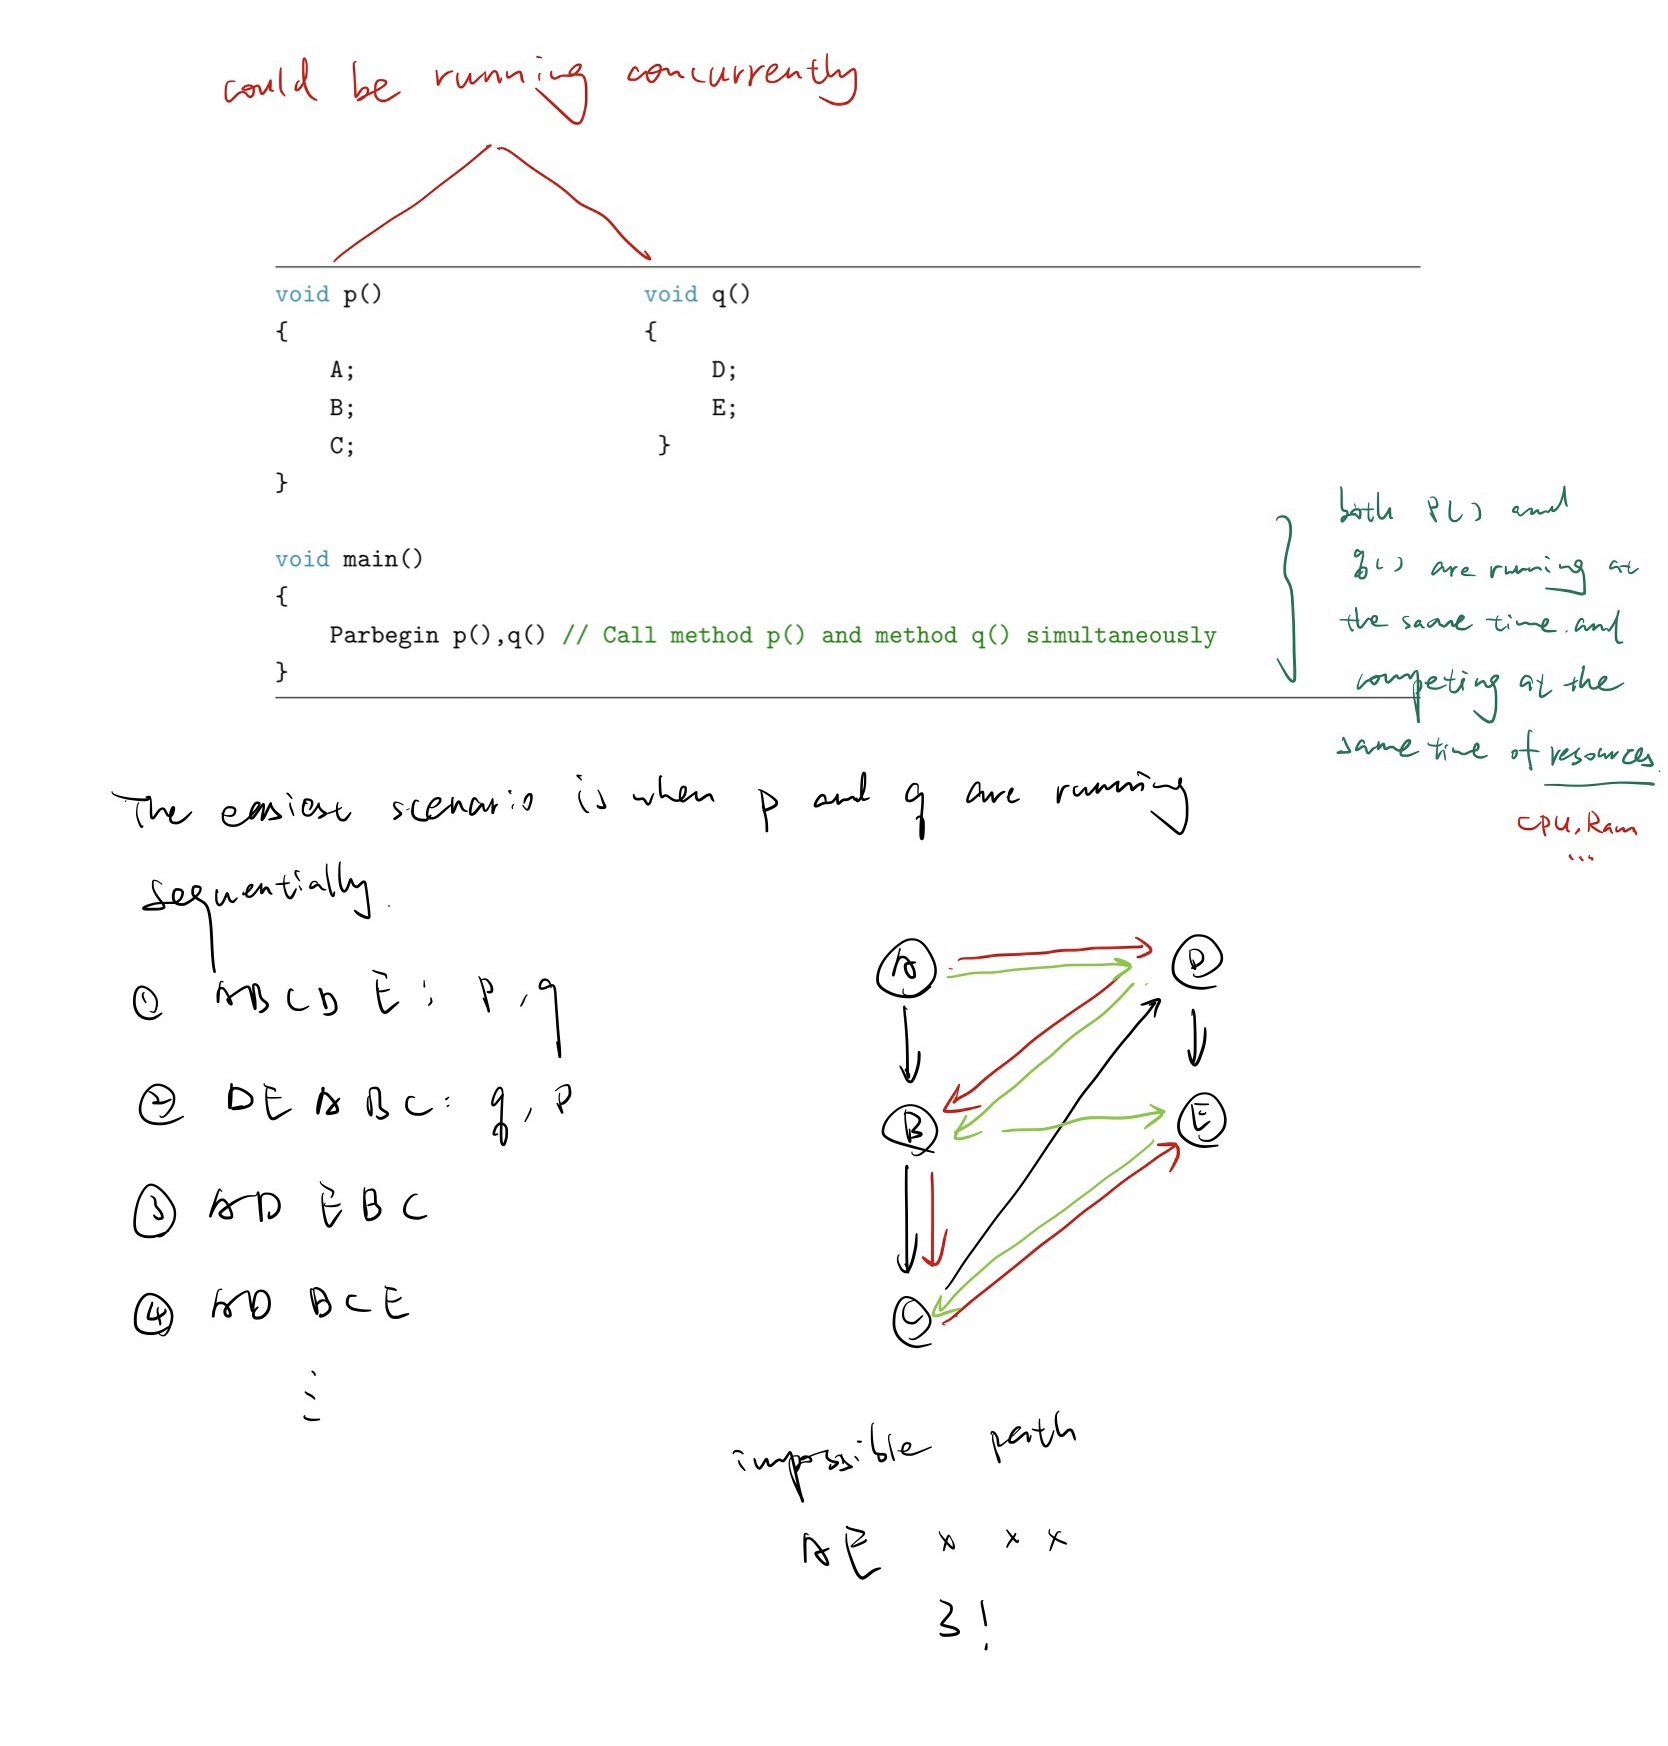 could be running concurrently
void p()
{
A;
B;
C;
}
void q()
{
D;
E;
}
void main()
{
Parbegin p(),q() // Call method p() and method q() simultaneously
}
both P() and
q() are running at
the same time and
competing at the
same time of resources.
CPU, Ram
...
The easiest scenario is when p and q are running
sequentially.
① ABCD E: P, q
② DE A BC: q, P
③ AD EBC
④ AD BCE
⋮
A
D
B
E
C
impossible path
AE x x x
3!